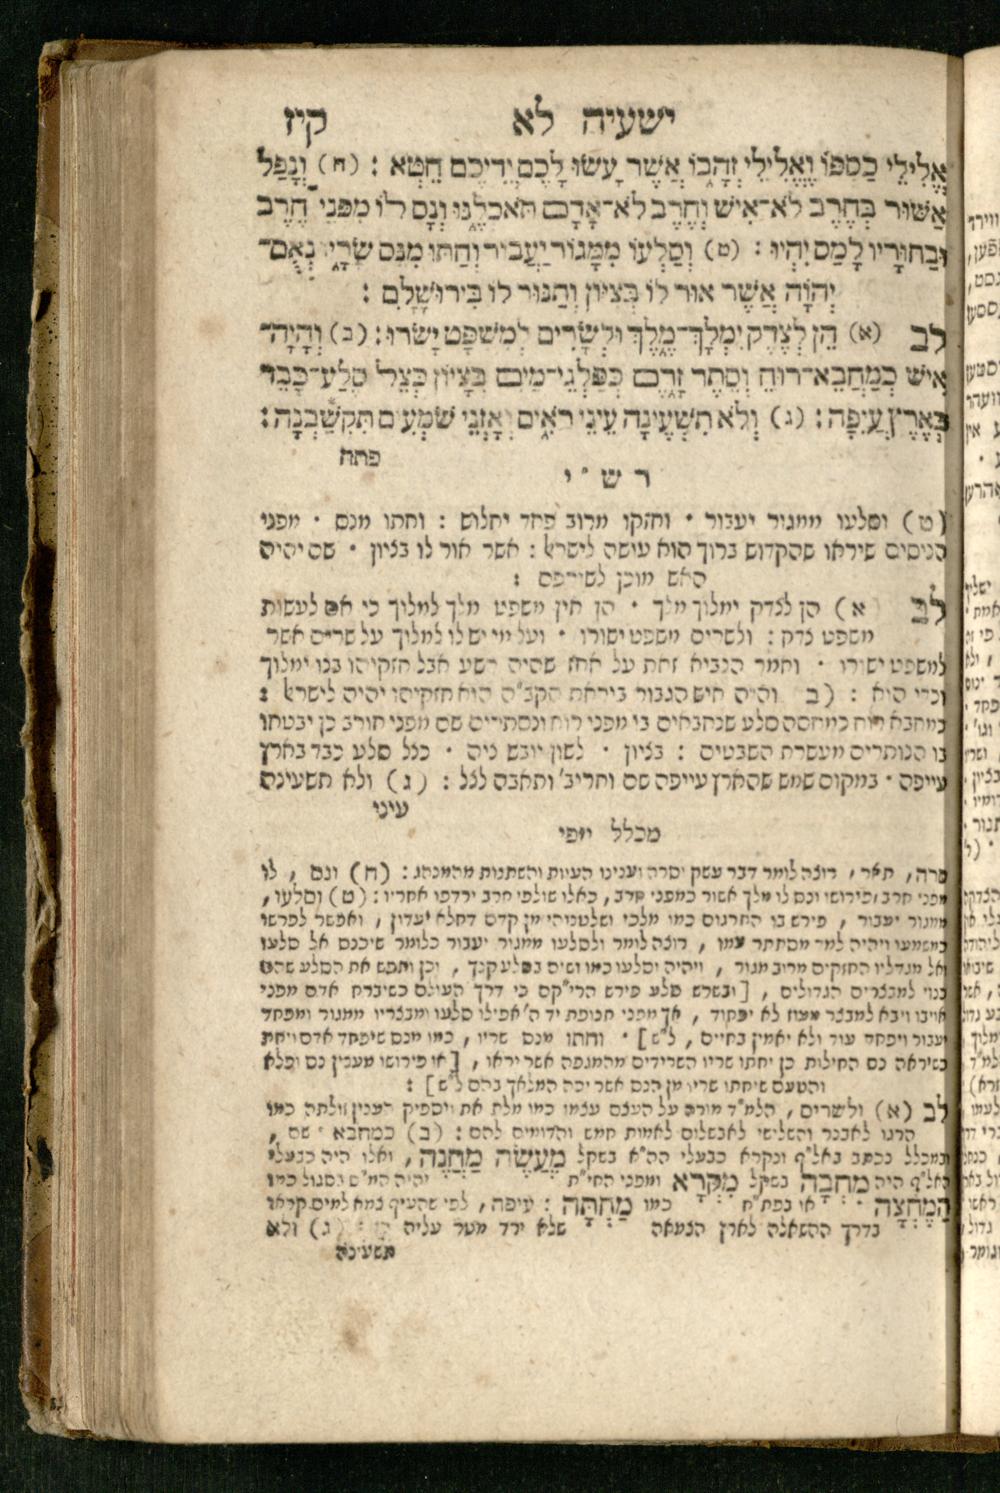 ישעיה לא קיז
אֱלִילֵי כַסְפּוֹ וֶאֱלִילֵי זְהָבוֹ אֲשֶׁר עָשׂוּ לָכֶם יְדֵיכֶם חֵטְא : (ח) וְנָפַל
אַשּׁוּר בְּחֶרֶב לֹא־אִישׁ וְחֶרֶב לֹא־אָדָם תֹּאכֲלֶנּוּ וְנָס לוֹ מִפְּנֵי חֶרֶב
וּבַחוּרָיו לָמַס יִהְיוּ : (ט) וְסַלְעוֹ מִמָּגוֹר יַעֲבוֹר וְחַתּוּ מִנֵּס שָׂרָיו נְאֻם־
יְהוָֹה אֲשֶׁר אוּר לוֹ בְּצִיּוֹן וְתַנּוּר לוֹ בִּירוּשָׁלָם :
לב (א) הֵן לְצֶדֶק יִמְלָךְ־מֶלֶךְ וּלְשָׂרִים לְמִשְׁפָּט יָשֹׂרוּ : (ב) וְהָיָה־
אִישׁ כְּמַחֲבֵא־רוּחַ וְסֵתֶר זָרֶם כְּפַלְגֵי־מַיִם בְּצָיוֹן כְּצֵל סֶלַע־כָּבֵד
בְּאֶרֶץ עֲיֵפָה : (ג) וְלֹא תִשְׁעֶינָה עֵינֵי רֹאִים וְאָזְנֵי שֹׁמְעִים תִּקְשַׁבְנָה :
פתח
רש"י
(ט) וסלעו ממגור יעבור · וחזקו מרוב פחד יחלוש : וחתו מנס · מפני
הניסים שיראו שהקדוש ברוך הוא עושה לישראל : אשר אור לו בציון · שם יהיה
האש מוכן לשורפם :
לב א) הן לצדק ימלוך מלך · הן אין משפט מלך למלוך כי אם לעשות
משפט צדק : ולשרים משפט ישורו · ועל מי יש לו למלוך על שרים אשר
למשפט ישורו · ואמר הנביא זאת על אחז שהיה רשע אבל חזקיהו בנו ימלוך
וכדי הוא : (ב והיה איש הגבור ביראת הקב"ה הוא חזקיהו יהיה לישראל :
כמחבא רוח כמחסה סלע שנחבאים בו מפני רוח ונסתרים שם מפני חורב כן יבטחו
בו הנותרים מעשרת השבטים : בציון · לשון יובש ציה · כצל סלע כבד בארץ
עייפה · במקום שמש שהארץ עייפה שם וחריב' ותאבה לצל : (ג) ולא תשעינה
עיני
מכלל יופי
סרה, תאר, רוצה לומר דבר עשק יסרה וענינו העוות והשתנות מהמנהג : (ח) ונס , לו
מפני חרב, פירושו ונס לו מלך אשור כמפני חרב, כאלו שולפי חרב ירדפו אחריו : (ט) וסלעו,
ממגור יעבור , פירש בו התרגום כמו מלכי ושלטוניהי מן קדם דחלא יעדון , ואפשר לפרשו
כמשמעו ויהיה למד מסתתר עמו , רוצה לומר ולסלעו ממגור יעבור כלומר שיכנס אל סלעו
ואל מגדליו החזקים מרוב מגור , ויהיה וסלעו כמו ושים בסלע קנך , וכן ותפש את הסלע שהם
כנוי למבצרים הגדולים , [ובשרש סלע פירש הרי"קם כי דרך העולם כשיברח אדם מפני
אויבו ויבא למבצר מעוז לא יפחוד , אך מפני תנופת יד ה' אפילו סלעו ומבצריו ממגור ומפחד
יעבור ויפחד עוד ולא יאמין בחיים , ל"ש] · וחתו מנס שריו , כמו מנס שיפחד אדם ויחת
כשיראה נס החילות כן יחתו שריו השרידים מהמגפה אשר יראו , [או פירושו מענין נס ופלא
והטעם שיחתו שריו מן הנס אשר יכה המלאך בהם ל"ש] :
לב (א) ולשרים , הלמ"ד מורה על העצם עצמו כמו מלת את ויספיק הענין זולתה כמו
הרגו לאבנר והשלישי לאבשלום לאמות חמש והדומים להם : (ב) כמחבא , שם ,
ובמכלל נכתב באל"ף ונקרא כבעלי הה"א בשקל מַעֲשֶׂה מַחֲנֶה, ואלו היה כבעלי
האל"ף היה מַחְבָּה בשקל מִקְרָא ומפני החי"ת יהיה המ"ם בסגול כמו
הַמֶּחֱצָה · או בפת"ח כמו מַחְתָּה : עיפה , לפי שהעיף צמא למים קראו
בדרך ההשאלה לארץ הצמאה שלא ירד מטר עליה כן : (ג) ולא
תשעינה